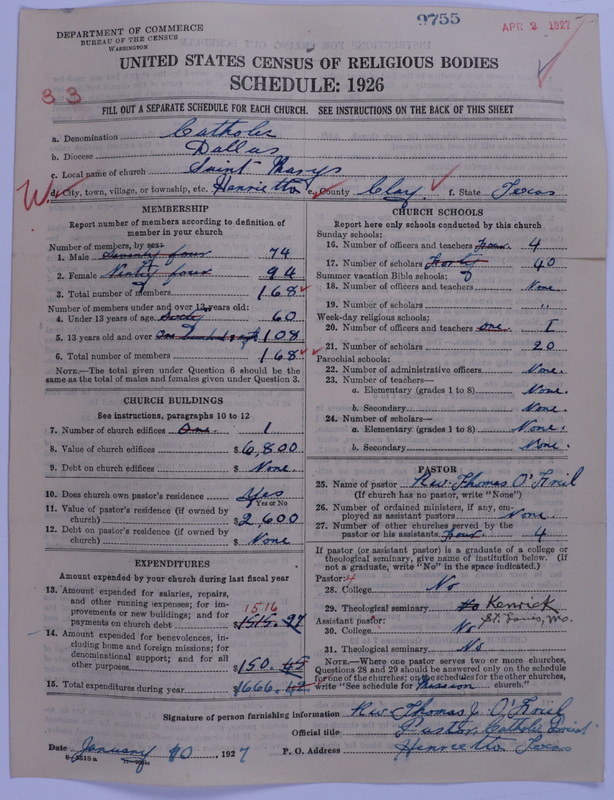 DEPARTMENT OF COMMERCE
BUREAU OF THE CENSUS
WASHINGTON
9755
APR 2 1927
UNITED STATES CENSUS OF RELIGIOUS BODIES
SCHEDULE: 1926
33
FILL OUT A SEPARATE SCHEDULE FOR EACH CHURCH. SEE INSTRUCTIONS ON THE BACK OF THIS SHEET
a. Denomination Catholic
b. Diocese Dallas
c. Local name of church Saint Marys
d. City, town, village, or township, etc. Henrietta e. County Clay f. State Texas
MEMBERSHIP
Report number of members according to definition of member in your church
Number of members, by sex:
1. Male Seventy four 74
2. Female Ninty four 94
3. Total number of members 168
Number of members under and over 13 years old:
4. Under 13 years of age Sixty 60
5. 13 years old and over One hundred eight 108
6. Total number of members 168
NOTE.—The total given under Question 6 should be same as the total of males and females given under Question 3.
CHURCH BUILDINGS
See instructions, paragraphs 10 to 12
7. Number of church edifices One 1
8. Value of church edifices $6,800
9. Debt on church edifices $ None.
10. Does church own pastor's residence Yes
Yes or No
11. Value of pastor's residence (if owned by church) $2,600
12. Debt on pastor's residence (if owned by church) $ None
EXPENDITURES
Amount expended by your church during last fiscal year
13. Amount expended for salaries, repairs, and other running expenses; for improvements or new buildings; and for payments on church debt 1516 $1515.97
14. Amount expended for benevolences, including home and foreign missions; for denominational support; and for all other purposes. $150.45
15. Total expenditures during year $1666.42
CHURCH SCHOOLS
Report here only schools conducted by this church
Sunday schools:
16. Number of officers and teachers Four 4
17. Number of scholars Forty 40
Summer vacation Bible schools:
18. Number of officers and teachers None.
19. Number of scholars "
Week-day religious schools:
20. Number of officers and teachers one. 1
21. Number of scholars 20
Parochial schools:
22. Number of administrative officers None.
23. Number of teachers—
a. Elementary (grades 1 to 8) None.
b. Secondary None.
24. Number of scholars—
a. Elementary (grades 1 to 8) None.
b. Secondary None.
PASTOR
25. Name of pastor Rev. Thomas O'Kneil
(If church has no pastor, write "None")
26. Number of ordained ministers, if any, employed as assistant pastors None.
27. Number of other churches served by the pastor or his assistants Four 4
If pastor (or assistant pastor) is a graduate of a college or theological seminary, give name of institution below. (If not a graduate, write "No" in the space indicated.)
Pastor:
28. College No
29. Theological seminary No Kenrick
St. Louis, Mo.
Assistant pastor:
30. College No
31. Theological seminary No
NOTE.—Where one pastor serves two or more churches, Questions 28 and 29 should be answered only on the schedule for one of the churches; on the schedules for the other churches, write "See schedule for Mission church."
Signature of person furnishing information Rev. Thomas J. O'Kneil
Official title Pastor, Catholic Priest
Date January 10, 1927 P. O. Address Henrietta Texas